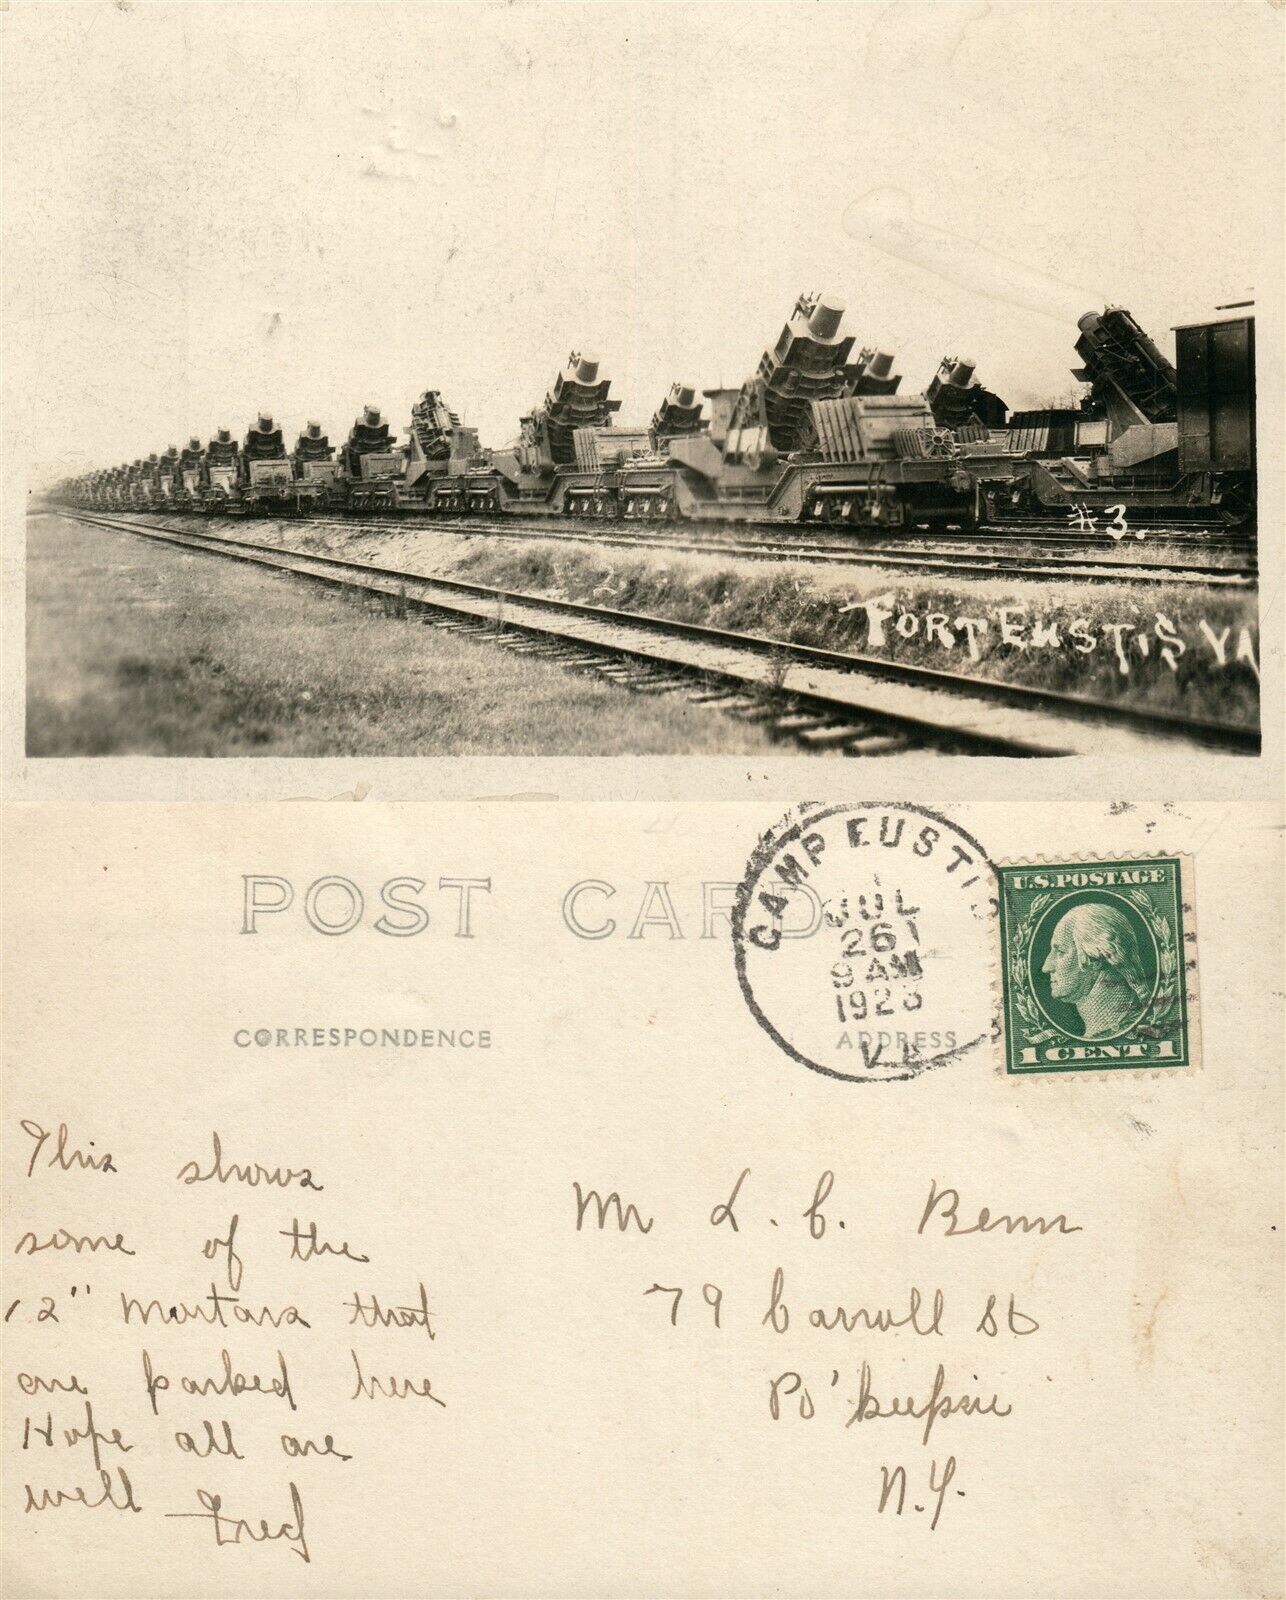 #3.
FORT EUSTIS VA
POST CARD
CORRESPONDENCE
ADDRESS
CAMP EUSTIS
JUL
26
9 AM
1923
VA
U.S. POSTAGE
1 CENT 1
This shows
some of the
12" mortars that
are parked here
Hope all are
well Fred
Mr L. C. Benn
79 Carroll St
Po'keepsie
N.Y.